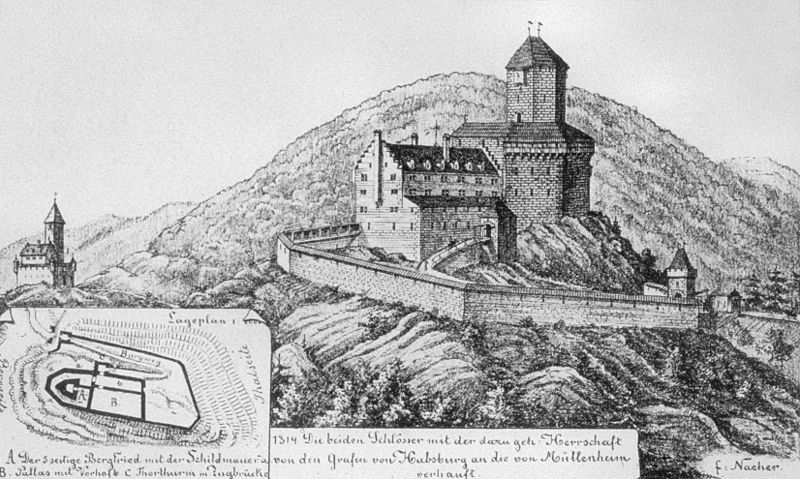 Lageplan 1:2000
Burgweg
A
b
B.
C
A Der 5 seitige Bergfried mit der Schildmauer a
B. Pallas mit Vorhof b C Thorthurm m Zugbrücke
1314 Die beiden Schlösser mit der dazu geh: Herrschaft
von den Grafen von Habsburg an die von Müllenheim
verkauft.
f: Naeher.